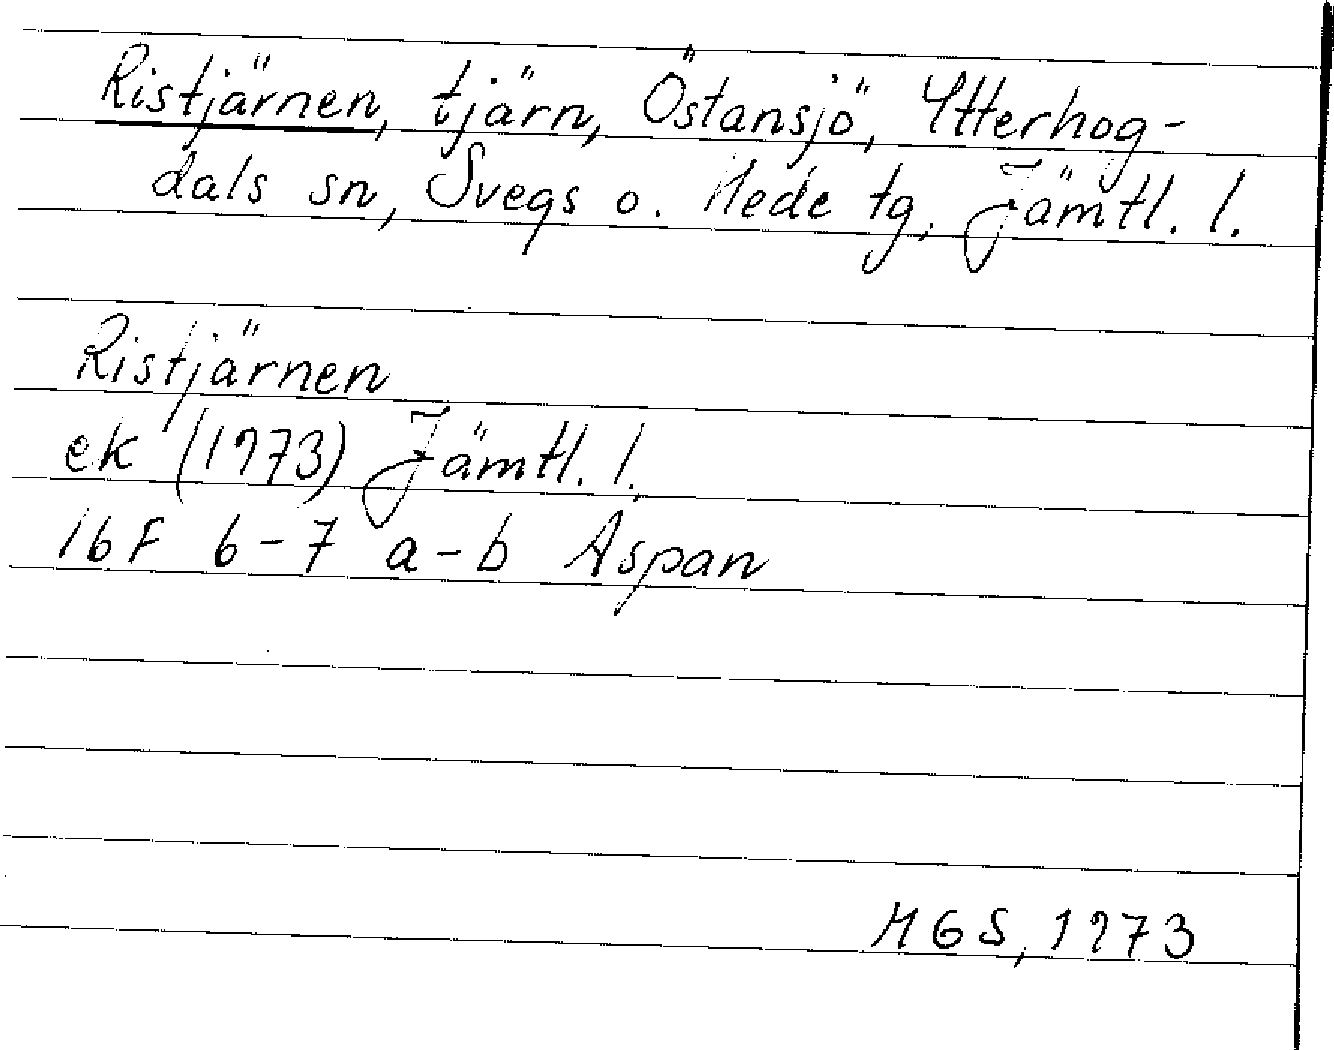 Ristjärnen, tjärn, Östansjö, Ytterhog-
dals sn, Svegs o. Hede tg, Jämtl. l.
Ristjärnen
ek (1973) Jämtl. l.
16F 6-7 a-b Aspan
MGS, 1973